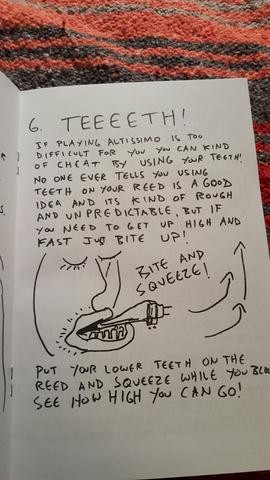 6. TEEEETH!
IF PLAYING ALTISSIMO IS TOO
DIFFICULT FOR YOU YOU CAN KIND
OF CHEAT BY USING YOUR TEETH!
NO ONE EVER TELLS YOU USING
TEETH ON YOUR REED IS A GOOD
IDEA AND ITS KIND OF ROUGH
AND UNPREDICTABLE, BUT IF
YOU NEED TO GET UP HIGH AND
FAST JUST BITE UP!
BITE AND
SQUEEZE!
PUT YOUR LOWER TEETH ON THE
REED AND SQUEEZE WHILE YOU
SEE HOW HIGH YOU CAN GO!